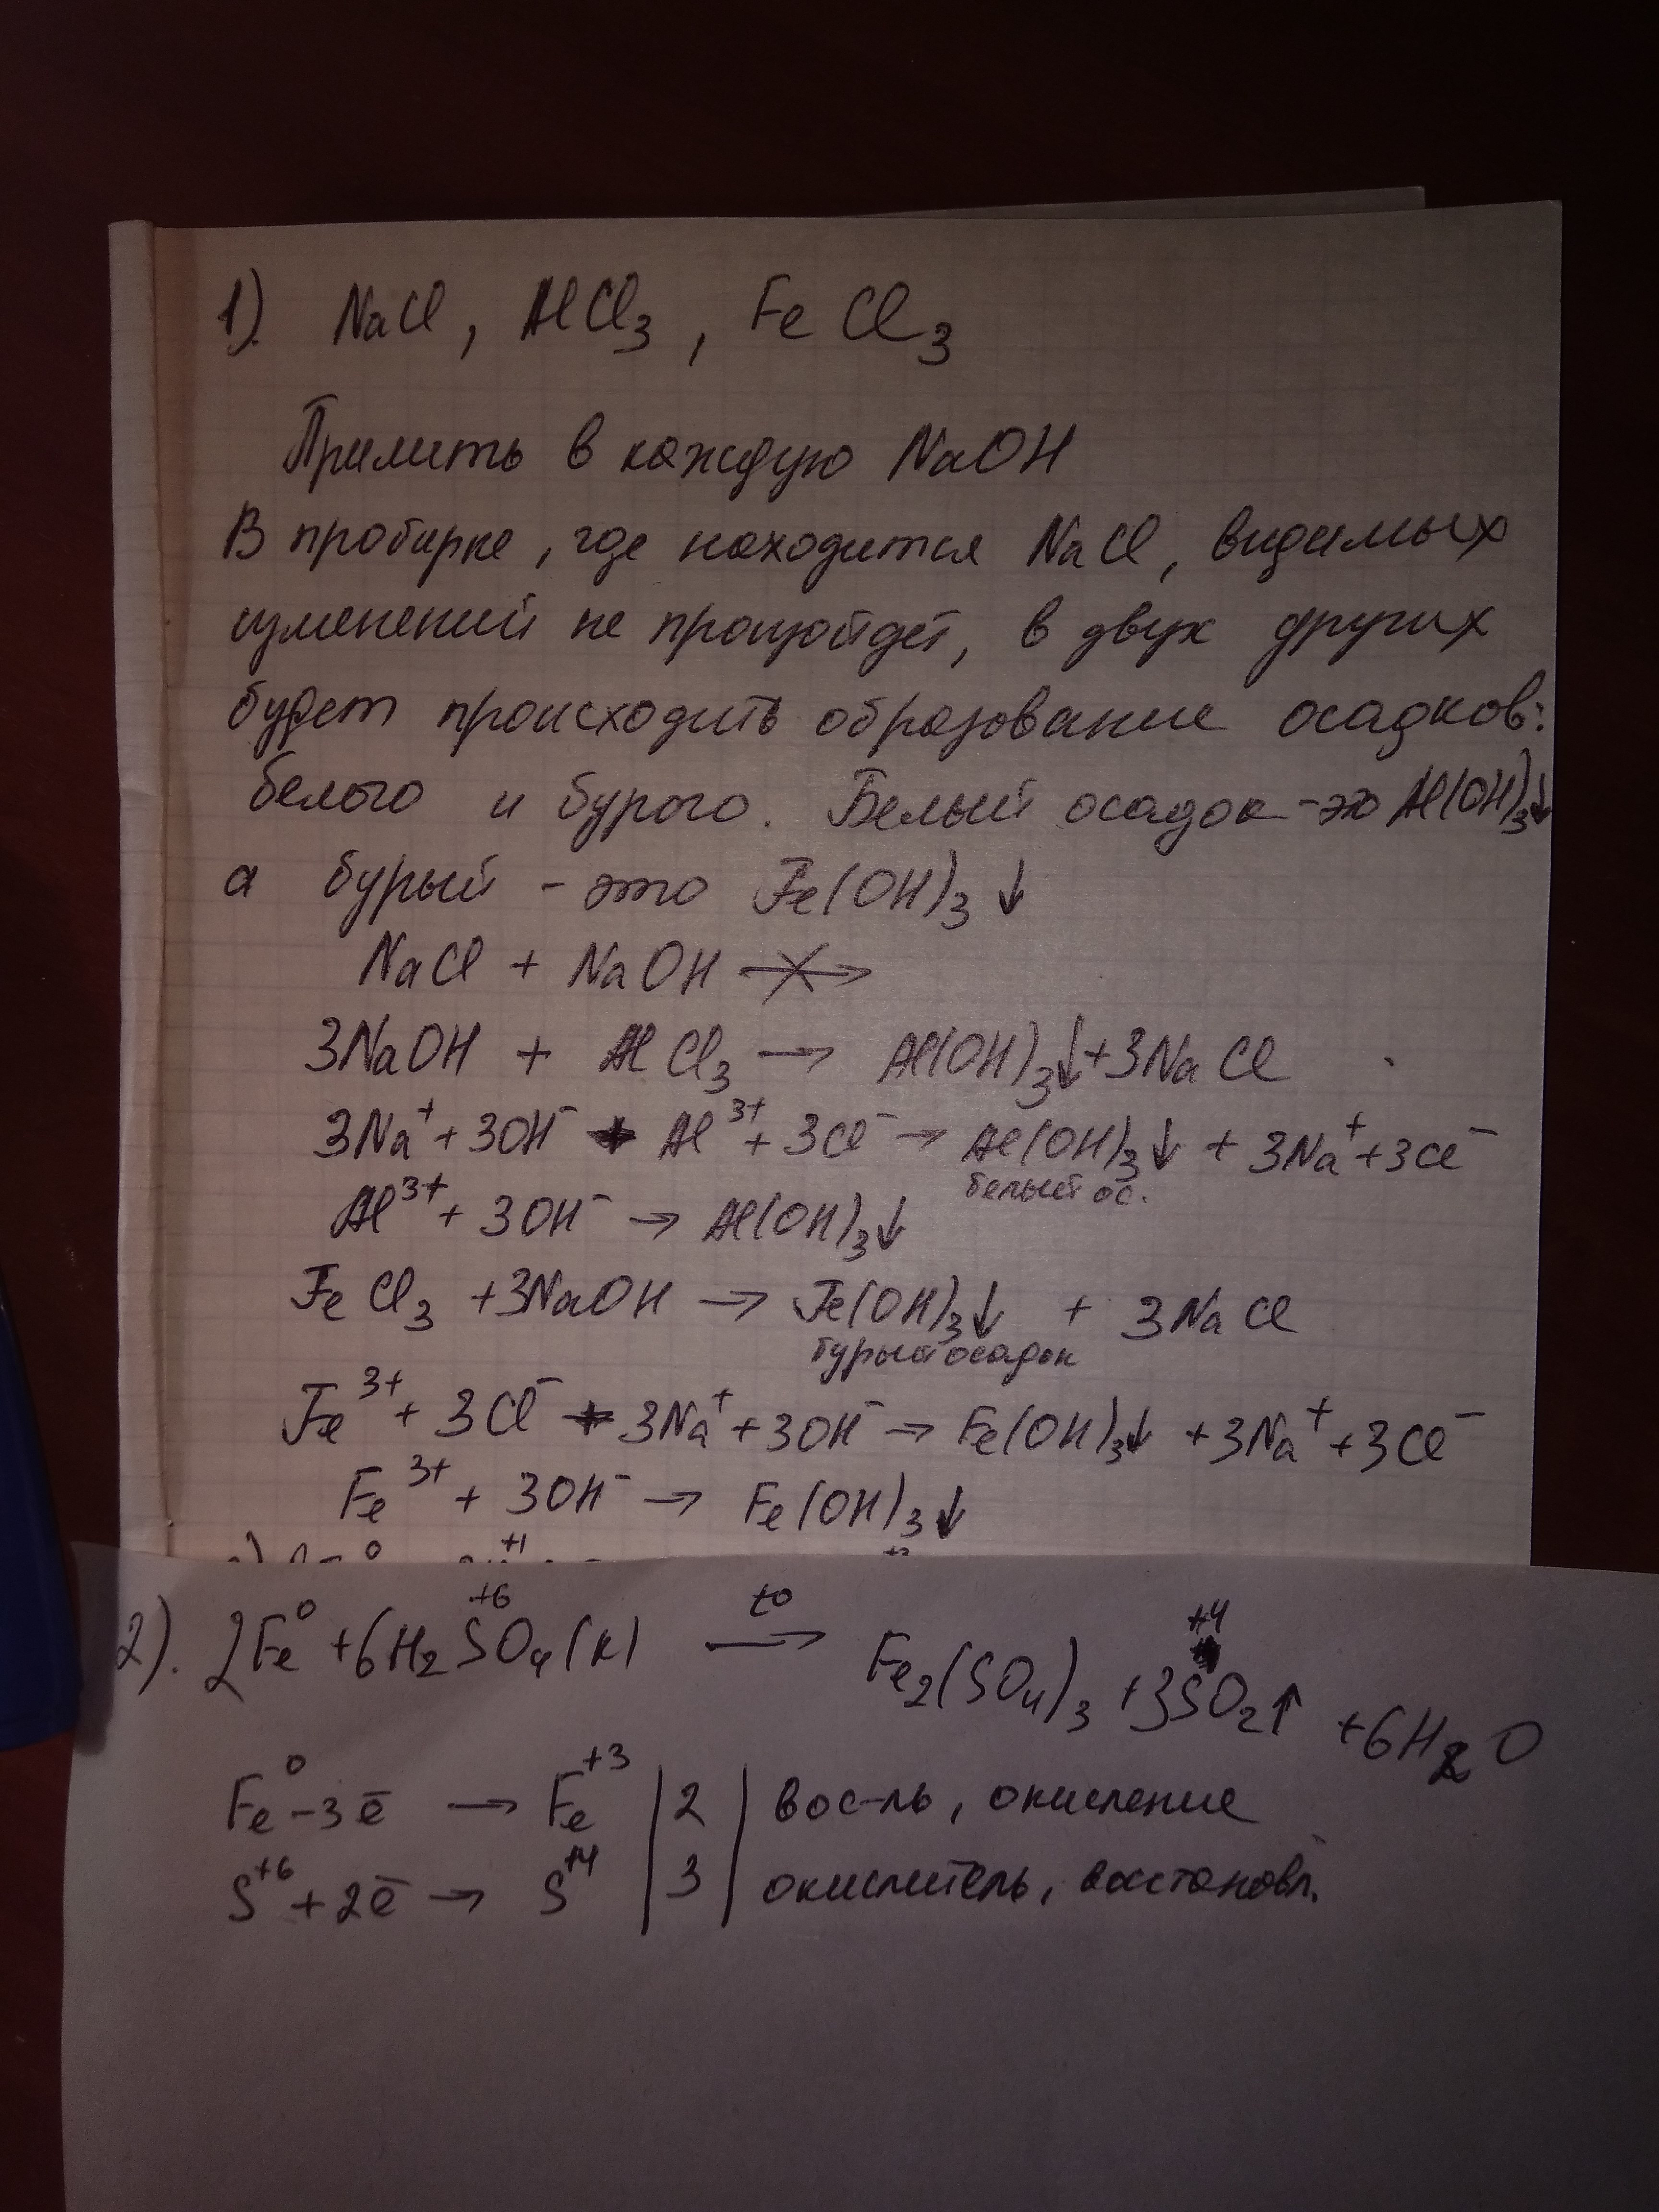 1). NaCl, AlCl₃, FeCl₃
Прилить в каждую NaOH
В пробирке, где находится NaCl, видимых
изменений не произойдёт, в двух других
будет происходить образование осадков:
белого и бурого. Белый осадок - это Al(OH)₃↓
а бурый - это Fe(OH)₃↓
NaCl + NaOH ↛
3NaOH + AlCl₃ → Al(OH)₃↓ + 3NaCl
3Na⁺ + 3OH⁻ + Al³⁺ + 3Cl⁻ → Al(OH)₃↓ + 3Na⁺ + 3Cl⁻
белый ос.
Al³⁺ + 3OH⁻ → Al(OH)₃↓
FeCl₃ + 3NaOH → Fe(OH)₃↓ + 3NaCl
бурый осадок
Fe³⁺ + 3Cl⁻ + 3Na⁺ + 3OH⁻ → Fe(OH)₃↓ + 3Na⁺ + 3Cl⁻
Fe³⁺ + 3OH⁻ → Fe(OH)₃↓
0 +1
0 +6 t° +4
2). 2Fe + 6H₂SO₄(к) → Fe₂(SO₄)₃ + 3SO₂↑ + 6H₂O
Fe⁰ - 3ē → Fe⁺³ | 2 | вос-ль, окисление
S⁺⁶ + 2ē → S⁺⁴ | 3 | окислитель, восстановл.